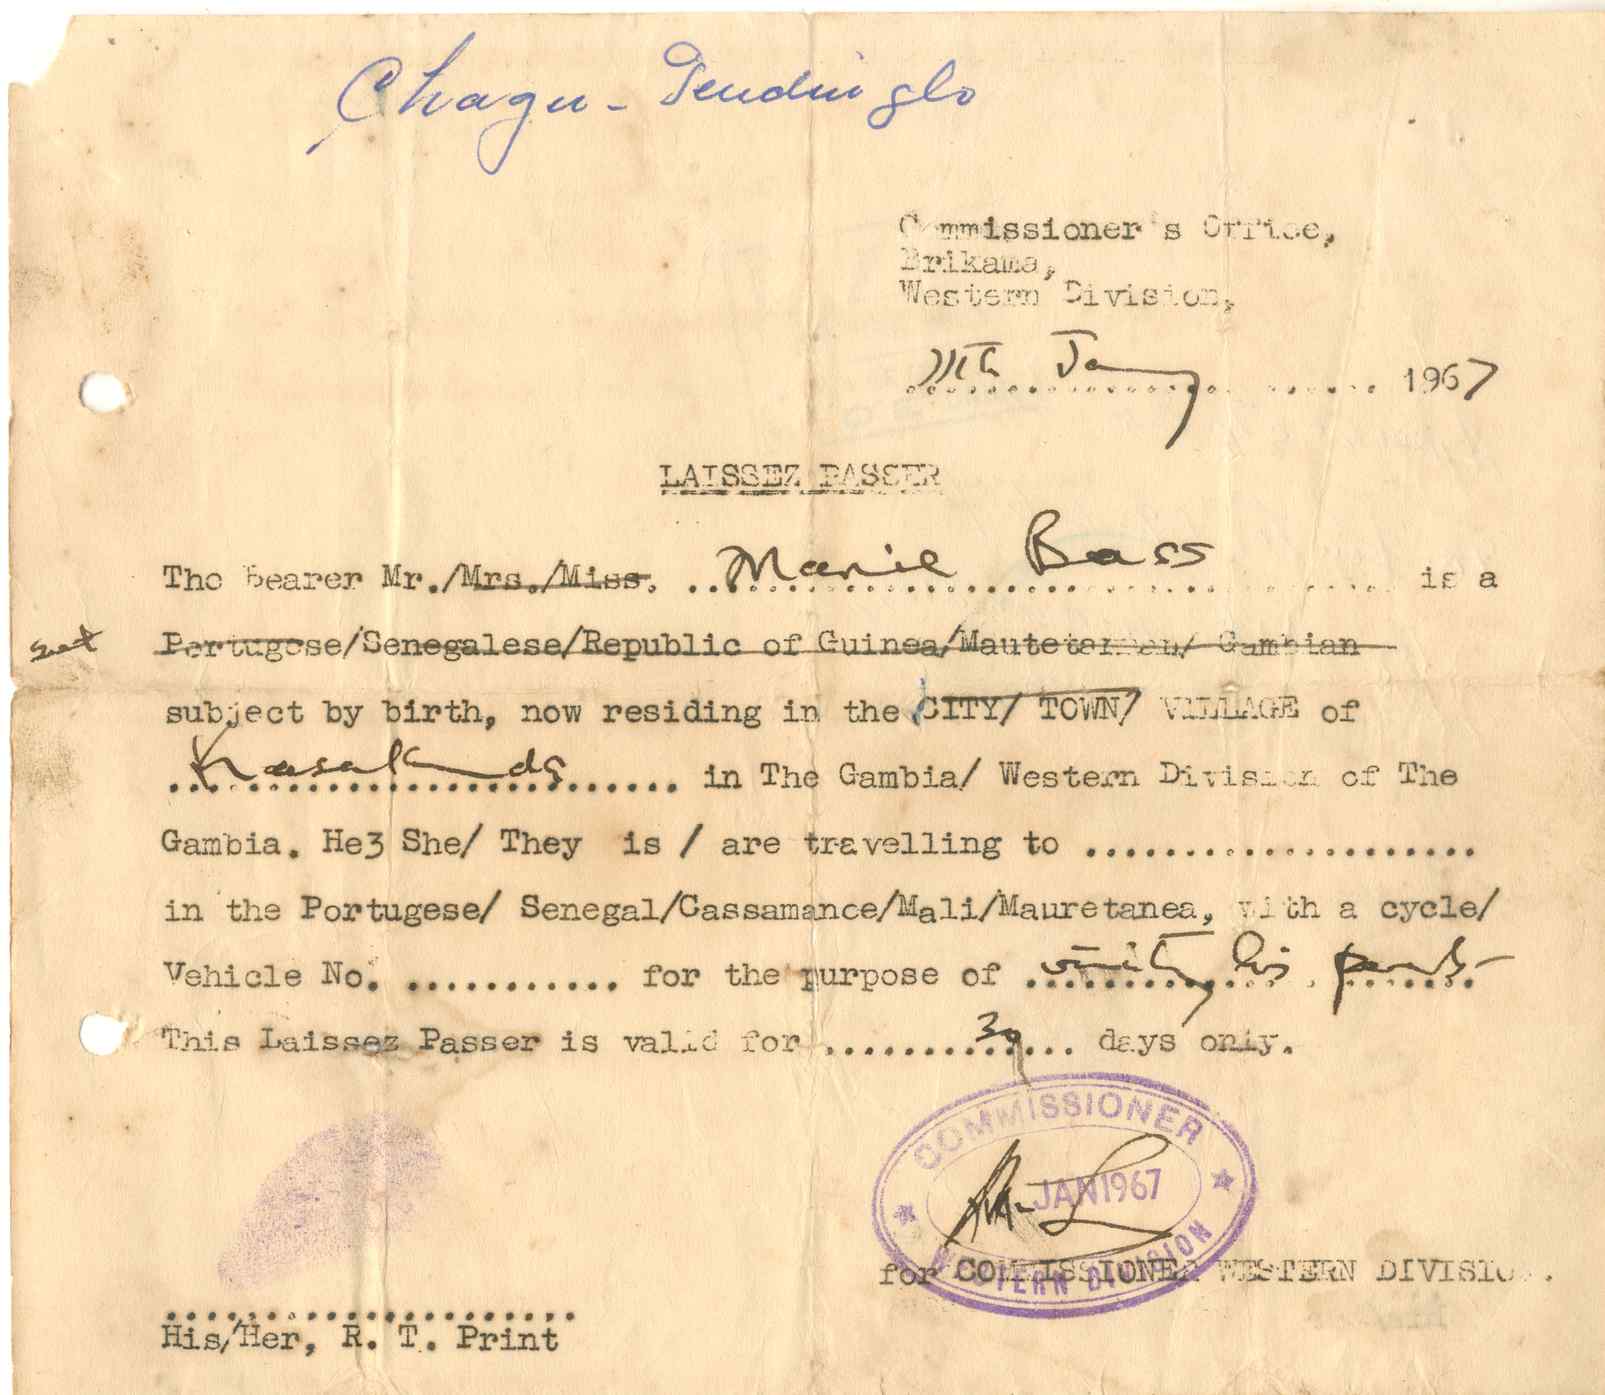 Chagu -
Commissioner's Office,
Brikama,
Western Division,
11th January 1967
LAISSEZ PASSER
The bearer Mr./Mrs./Miss. .. Bass is a
Portugese/Senegalese/Republic of Guinea/Mautetarnean/ Gambian
subject by birth, now residing in the CITY/ TOWN/ VILLAGE of
in The Gambia/ Western Division of The
Gambia. He3 She/ They is / are travelling to ....................
in the Portugese/ Senegal/Cassamance/Mali/Mauretanea, with a cycle/
Vehicle No. ........... for the purpose of visiting his parents
This Laissez Passer is valid for 30 days only.
COMMISSIONER
JAN 1967
WESTERN DIVISION
for COMMISSIONER WESTERN DIVISION.
His/Her, R. T. Print